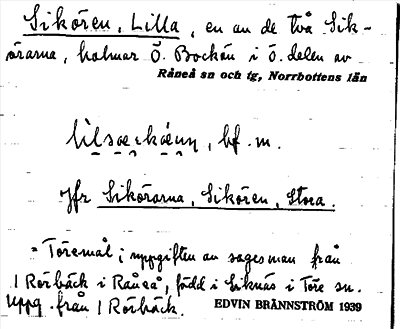 Sikören, Lilla, en av de två Sik-
örarna, holmar Ö. Bockön i ö. delen av
Råneå sn och tg, Norrbottens län
bf. m.
Jfr Sikörarna, Sikören, Stora.
= Töremål; uppgiften av sagesman från
Rörbäck i Råneå, född i Siknäs i Töre sn.
Uppg. från Rörbäck. EDVIN BRÄNNSTRÖM 1939